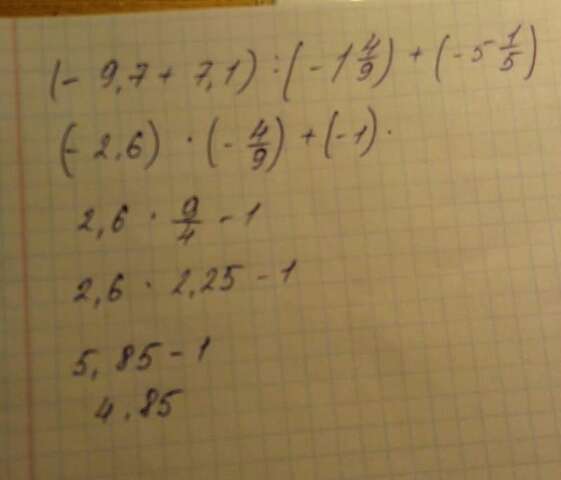 (- 9,7 + 7,1) : (- 1 4/9) + (- 5 1/5)
(- 2,6) · (- 4/9) + (- 1) ·
2,6 · 9/4 - 1
2,6 · 2,25 - 1
5,85 - 1
4,85